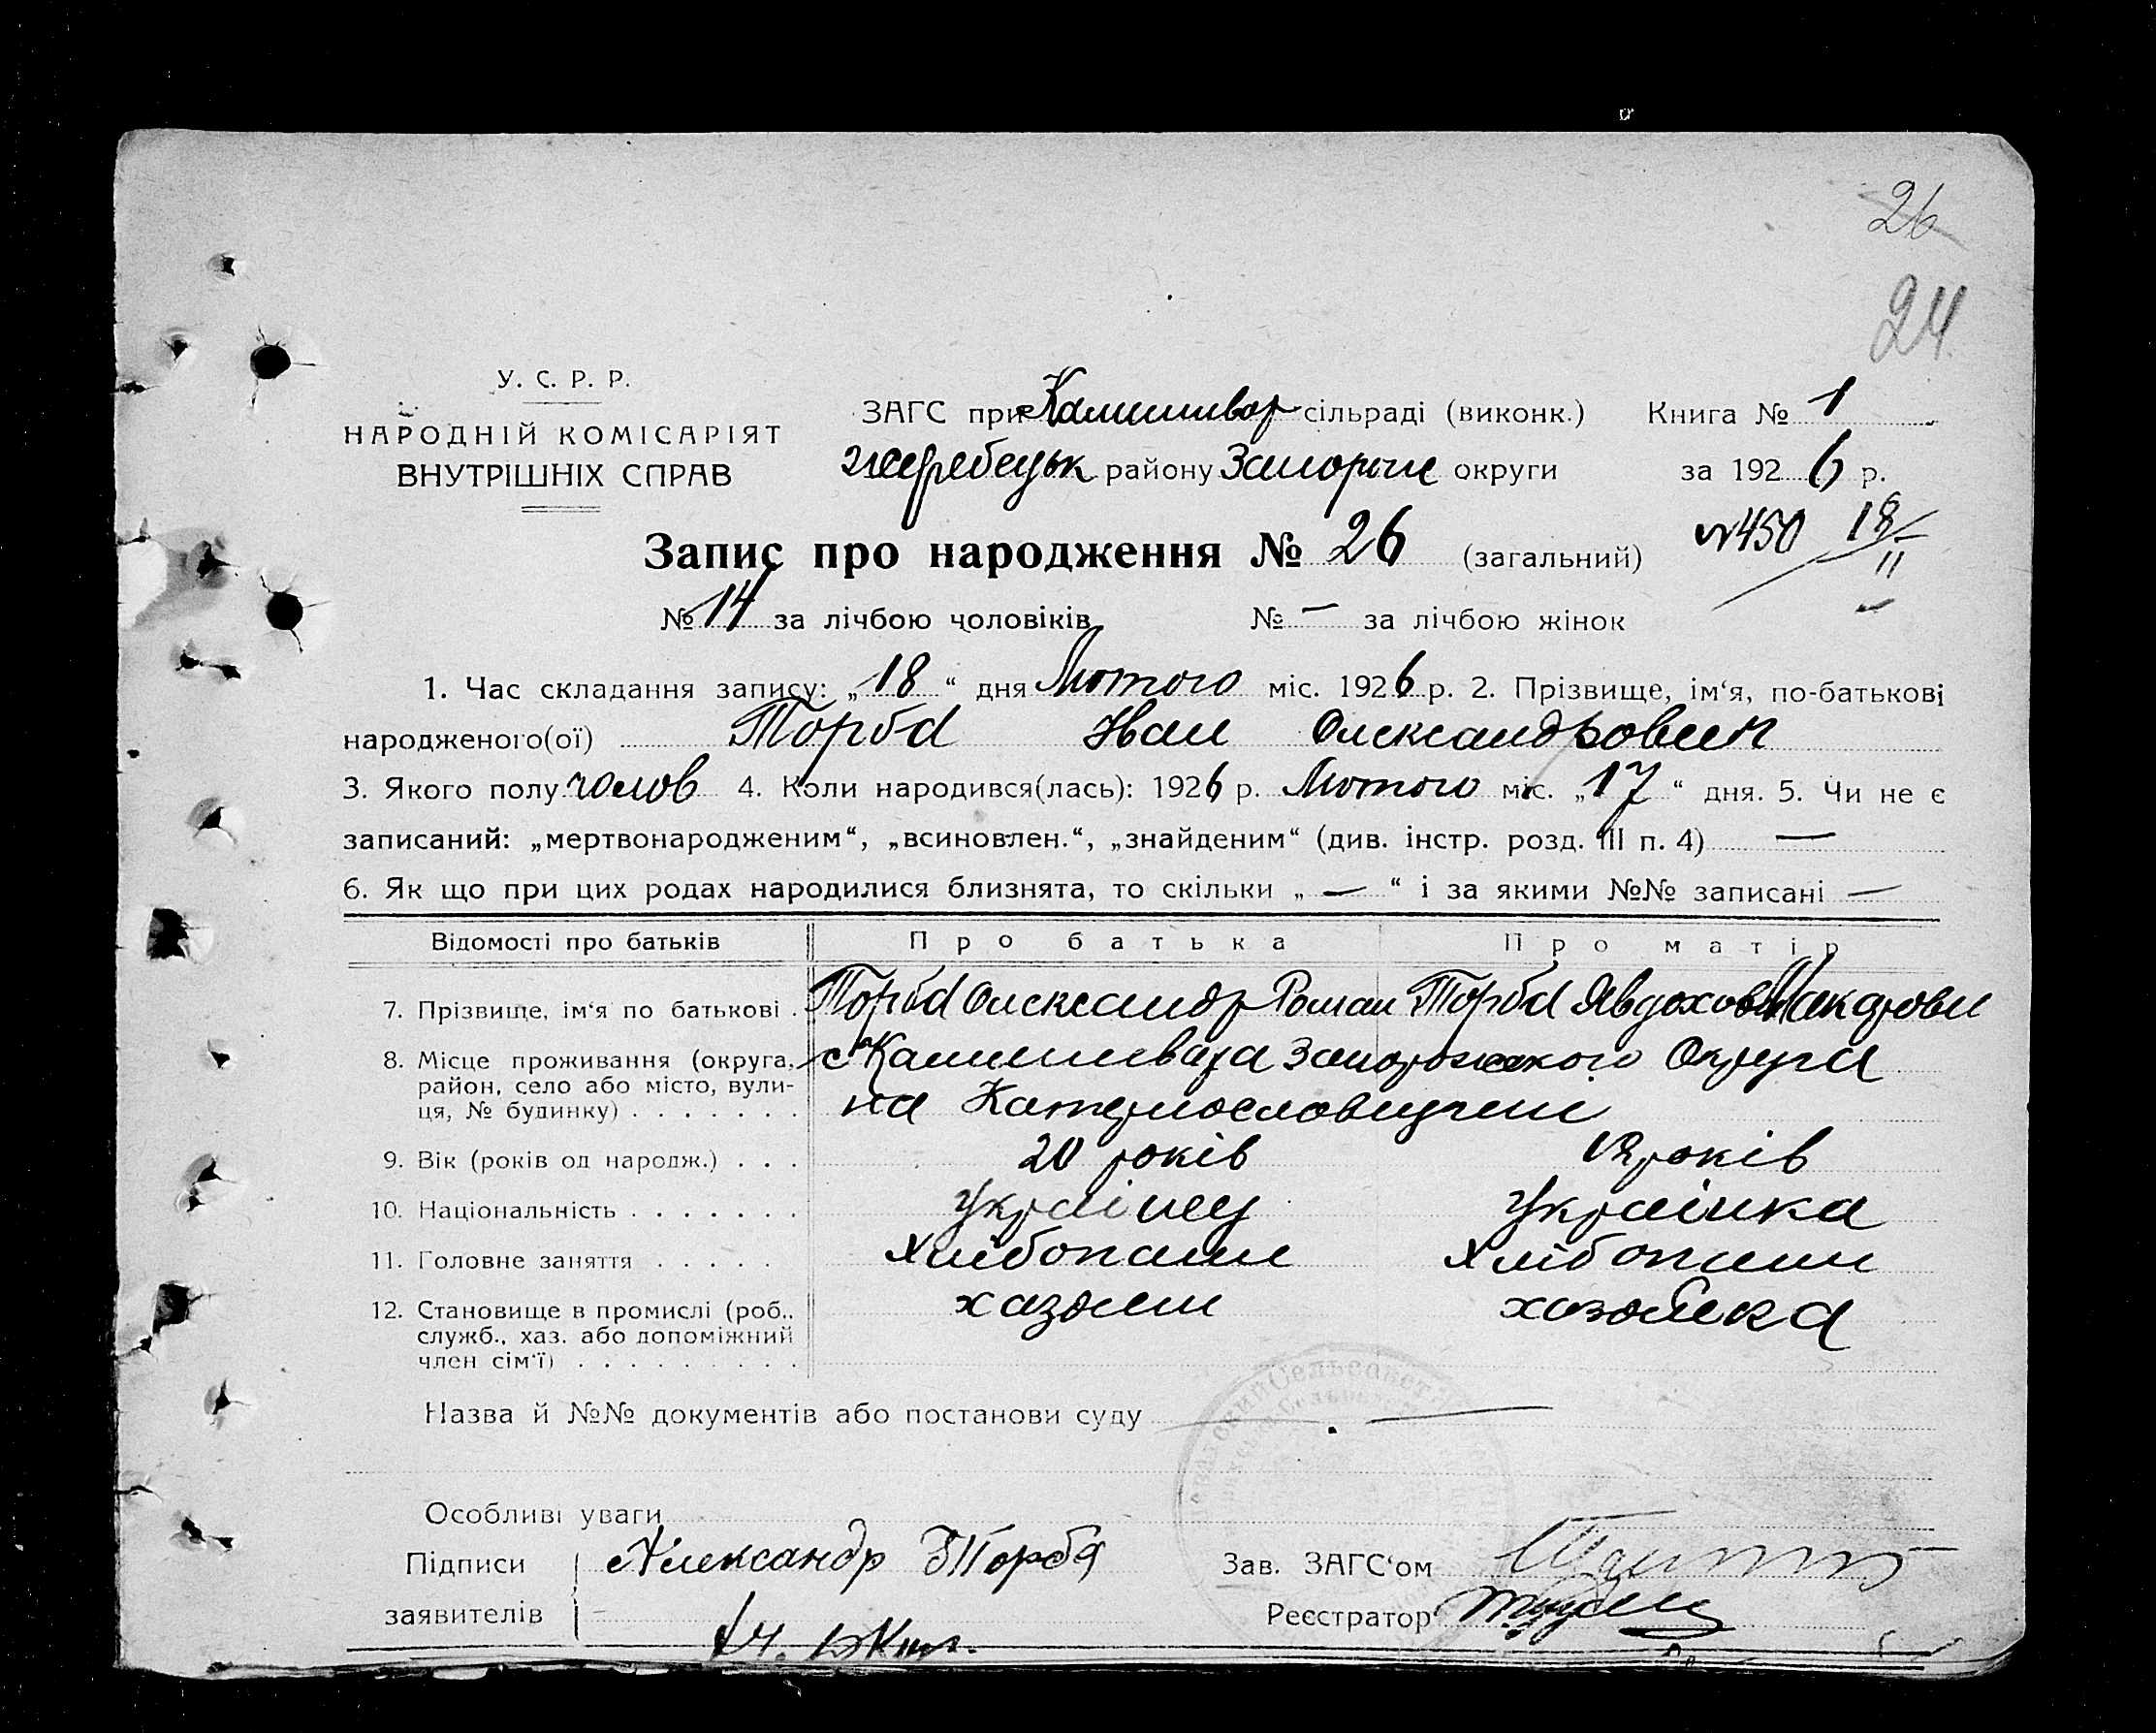 26
24
У. С. Р. Р.
НАРОДНІЙ КОМІСАРІЯТ
ВНУТРІШНІХ СПРАВ
ЗАГС при сільраді (виконк.) Книга № 1
Жеребецьк району округи за 1926 р.
Запис про народження № 26 (загальний)
№450 18/II
№ 14 за лічбою чоловіків № — за лічбою жінок
1. Час складання запису: „18“ дня Лютого міс. 1926 р. 2. Прізвище, ім‘я, по-батькові
народженого(ої) Торба Іван Олександрович
3. Якого полу чолов 4. Коли народився(лась): 1926 р. Лютого міс. „17“ дня. 5. Чи не є
записаний: „мертвонародженим“, „всиновлен.“, „знайденим“ (див. інстр. розд. III п. 4) —
6. Як що при цих родах народилися близнята, то скільки „ — “ і за якими №№ записані —
Відомості про батьків Про батька Про матір
7. Прізвище, ім‘я по батькові . Торба Олександр Роман Торба
8. Місце проживання (округа, район, село або місто, вулиця, № будинку) . . . . . . . Округа
на
9. Вік (років од народж.) . . . 20 років років
10. Національність . . . . . . . Українец Українка
11. Головне заняття . . . . .
12. Становище в промислі (роб., хазяин
служб., хаз. або допоміжний
член сім‘ї) . . . . . . . . .
Назва й №№ документів або постанови суду —
Особливі уваги
Підписи Александр Торба Зав. ЗАГС‘ом
заявителів Реєстратор